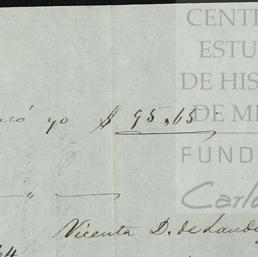 CENT
ESTU
DE HIS
DE M
FUND
Carl
yo $ 95,15
"
Vicenta D. de